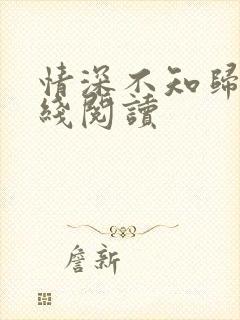 情深不知歸
綫閱讀
詹新